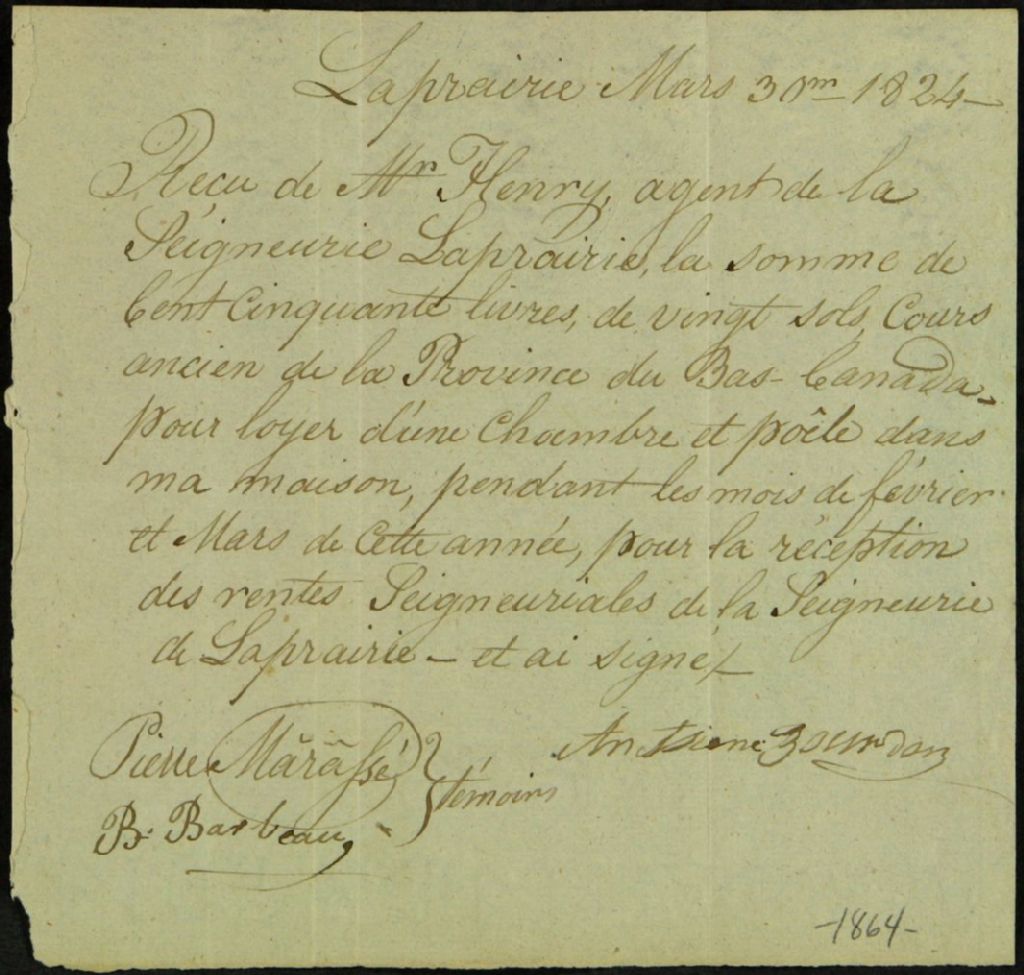 Laprairie Mars 30m 1824 -
Reçu de Mr Henry, agent de la
Seigneurie Laprairie, la somme de
Cent Cinquante livres, de vingt sols Cours
ancien de la Province du Bas-Canada -
pour loyer d'une Chambre et poêle dans
ma maison, pendant les mois de février
et Mars de Cette année, pour la réception
des rentes Seigneuriales de la Seigneurie
de Laprairie - et ai signé /
Pierre Mârâssé } témoins
Antoine Bourdon
B. Barbeau
-1864-